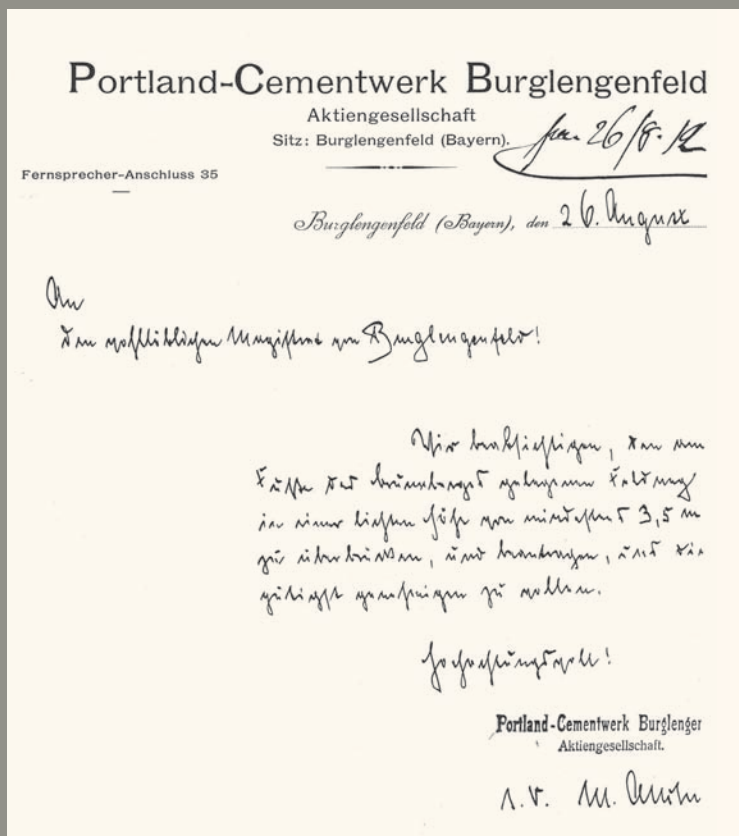 Portland-Cementwerk Burglengenfeld
Aktiengesellschaft
Sitz: Burglengenfeld (Bayern).
26/8. 12
Fernsprecher-Anschluss 35
Burglengenfeld (Bayern), den 26. August
An
den wohllöblichen Magistrat von Burglengenfeld!
Wir beabsichtigen, den am
Fusse des gelegenen Feldweg
in einer lichten Höhe von mindestens 3,5 m
zu überbrücken, und beantragen, uns dies
gütigst genehmigen zu wollen.
Hochachtungsvoll!
Portland-Cementwerk Burglenger
Aktiengesellschaft.
M.